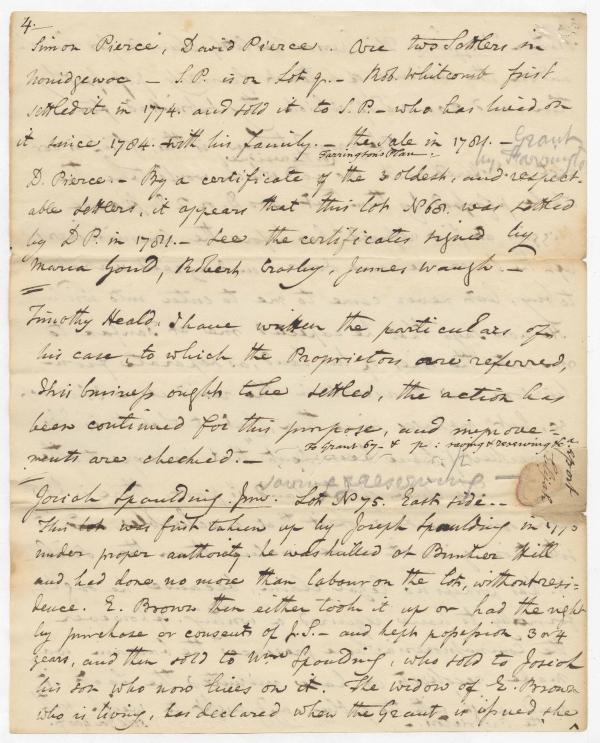 4.
Simon Pierce, David Pierce. Are two Settlers in
Noridgewoc — S.P. is on Lot 9. — Rob. Whitcomb first
settled it in 1774. and sold it to S.P. — who has lived on
it since 1784. with his family. — the sale in 1784. — Grant
by Farrington's
Farrington's Plan.
D. Pierce. — By a certificate of the 3 oldest, and respect-
able settlers, it appears that this lot No 68. was settled
by D P. in 1784. — See the certificates signed by
Maria Gould, Robert Crosby, James Waugh. —
Timothy Heald. I have written the particulars of
his case, to which the Proprietors are referred,
this business ought to be settled, the action has
been continued for this purpose, and improve-
To Grant by &
ments are checked. —
saving & reserving —
Josiah Spaulding Jun.r Lot No 75. East side. —
This lot was first taken up by Joseph Spaulding in
under proper authority. he was killed at Buncker Hill
and had done no more than labour on the lot, without resi-
dence. E. Brown then either took it up or had the right
by purchase or consent of J.S. — and kept possession 3 or 4
years, and then sold to Wm Spaulding, who sold to Josiah
his son who now lives on it. The widow of E. Brown
who is living, has declared when the Grant is issued she